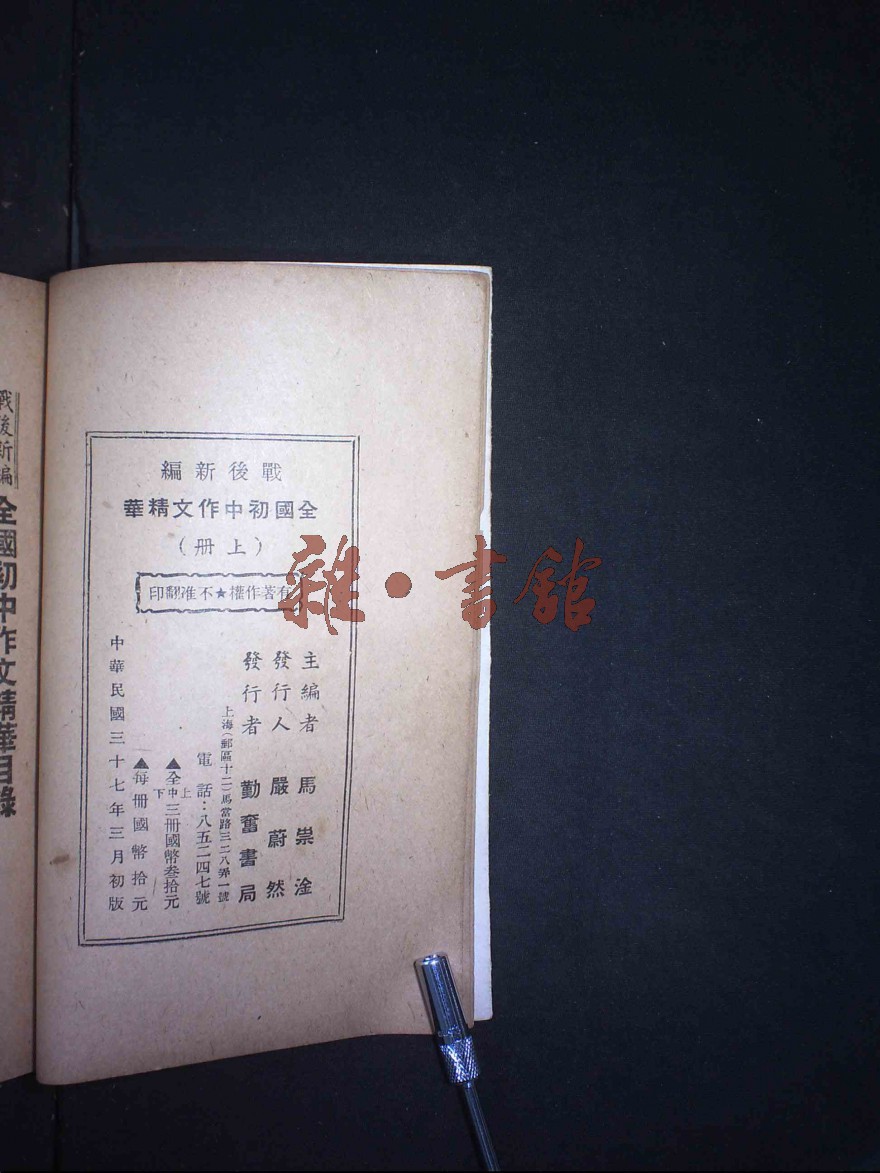 戰後新編
全國初中作文精華
（上册）
有著作權★不准翻印
主編者 馬崇淦
發行人 嚴蔚然
發行者 勤奮書局
上海（郵區十二）馬當路三二八弄一號
電話：八五二四七號
▲全上中下三册國幣叁拾元
▲每册國幣拾元
中華民國三十七年三月初版
戰後新編
全國初中作文精華目錄
雜•書館